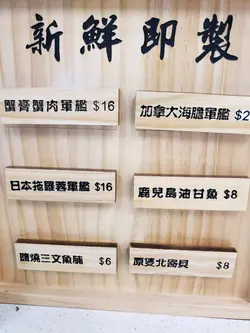 新鮮即製
蟹膏蟹肉軍艦 $16
加拿大海膽軍艦 $2
日本拖羅蓉軍艦 $16
鹿兒島油甘魚 $8
鹽燒三文魚腩 $6
原隻北寄貝 $8